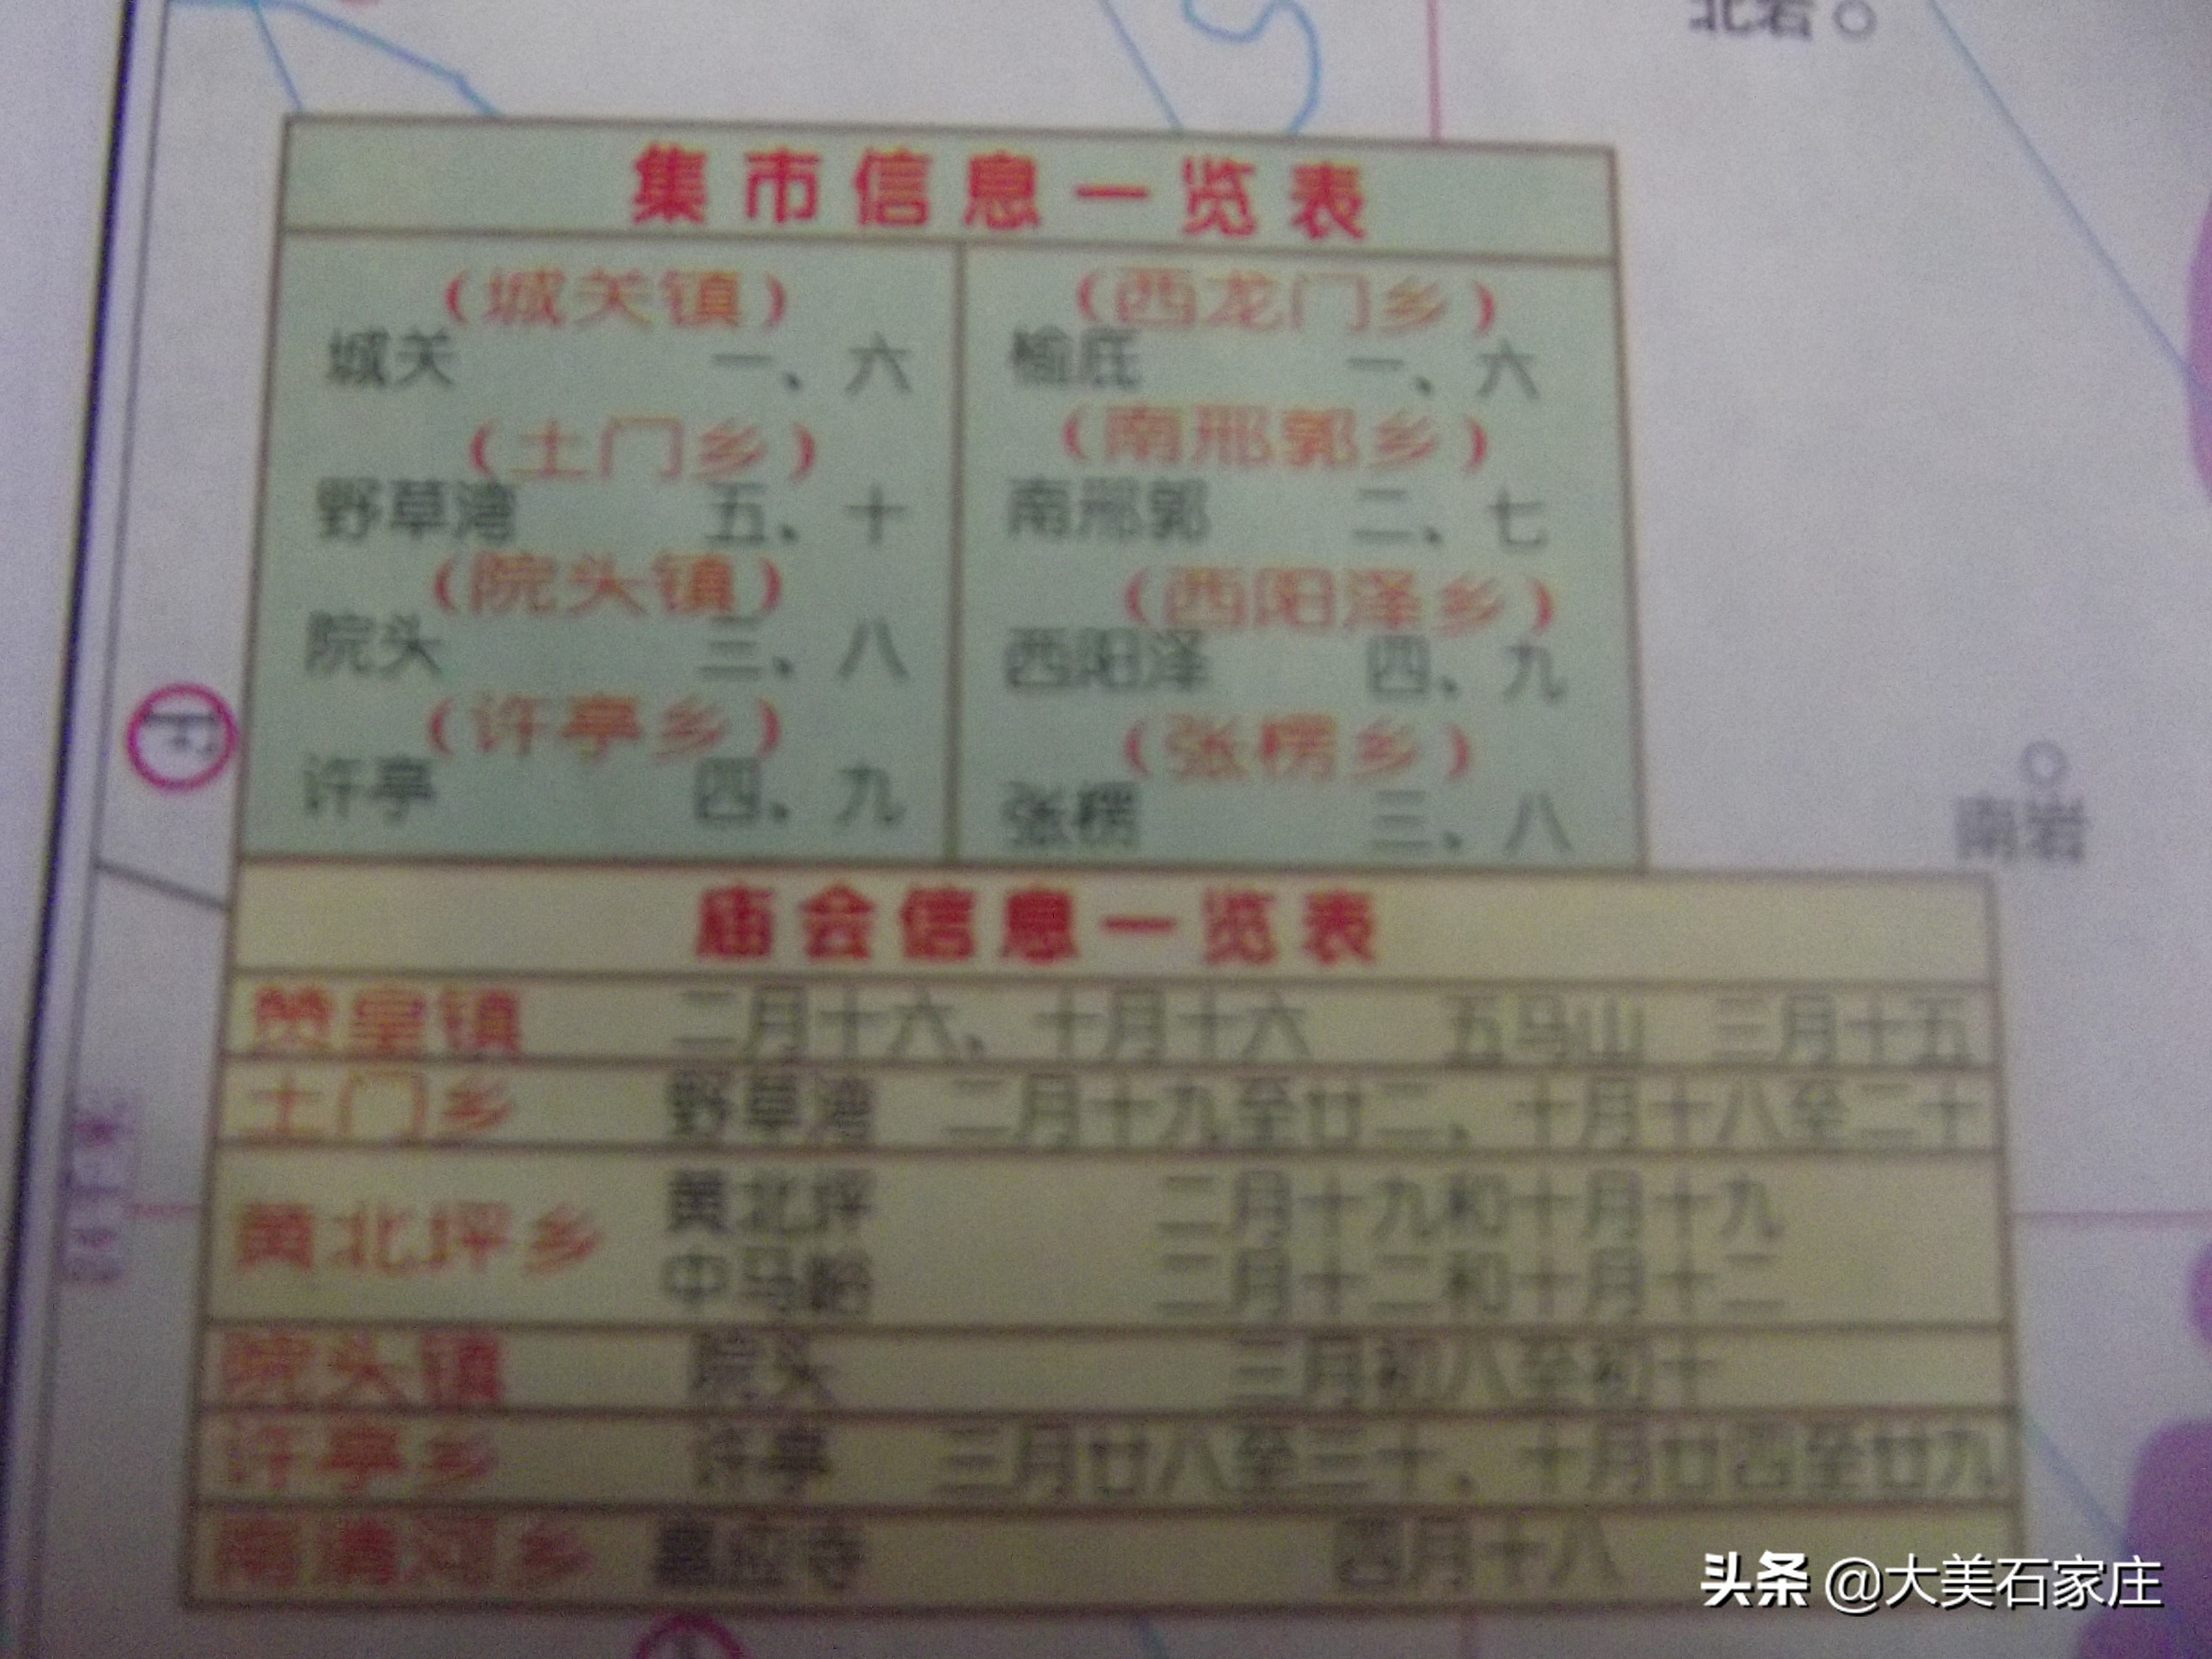 北岩
集市信息一览表
(城关镇)
城关 一、六
(土门乡)
野草湾 五、十
(院头镇)
院头 三、八
(许亭乡)
许亭 四、九
(西龙门乡)
榆底 一、六
(南邢郭乡)
南邢郭 二、七
(西阳泽乡)
西阳泽 四、九
(张楞乡)
张楞 三、八
南岩
庙会信息一览表
赞皇镇 二月十六、十月十六 五马山 三月十五
土门乡 野草湾 二月十九至廿二、十月十八至二十
黄北坪乡 黄北坪 二月十九和十月十九
中马峪 二月十二和十月十二
院头镇 院头 三月初八至初十
许亭乡 许亭 三月廿八至三十、十月廿四至廿九
南清河乡 嘉应寺 四月十八
头条 @大美石家庄